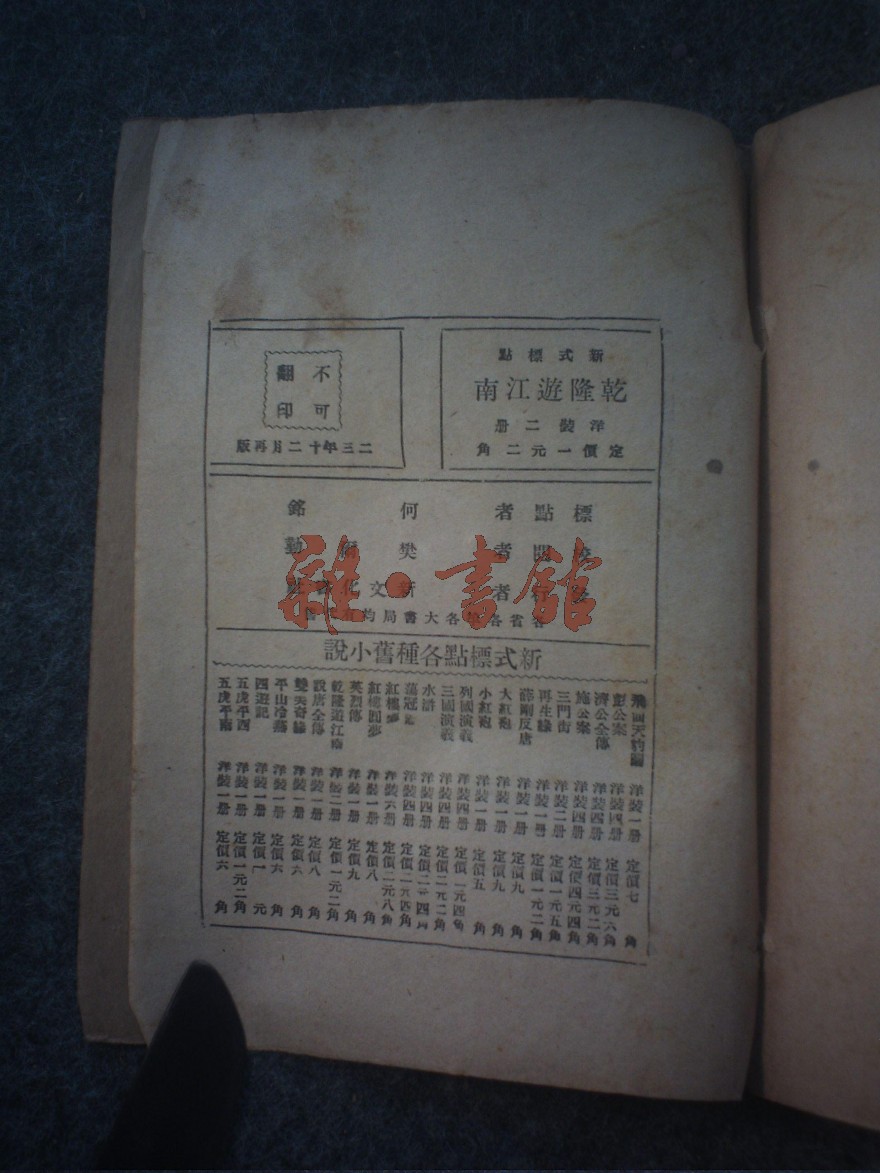 新式標點
乾隆遊江南
洋裝二册
定價一元二角
不可翻印
二三年十二月再版
標點者 何銘
者 樊
者 新文化
各省各 各大書局均有
雜·書館
新式標點各種舊小說
洋裝一册 定價七角
彭公案 洋裝四册 定價三元六角
濟公全傳 洋裝四册 定價三元二角
施公案 洋裝四册 定價四元四角
三門街 洋裝二册 定價一元五角
再生緣 洋裝一册 定價一元二角
薛剛反唐 洋裝一册 定價九角
大紅袍 洋裝一册 定價九角
小紅袍 洋裝一册 定價五角
列國演義 洋裝四册 定價一元四角
三國演義 洋裝四册 定價二元二角
水滸 洋裝四册 定價二元四角
蕩寇 洋裝四册 定價二元四角
紅樓夢 洋裝六册 定價二元八角
紅樓圓夢 洋裝一册 定價八角
英烈傳 洋裝一册 定價九角
乾隆遊江南 洋裝二册 定價一元二角
說唐全傳 洋裝一册 定價八角
雙美奇緣 洋裝一册 定價六角
平山冷燕 洋裝一册 定價六角
四遊記 洋裝一册 定價一元
五虎平西 洋裝一册 定價一元二角
五虎平南 洋裝一册 定價六角